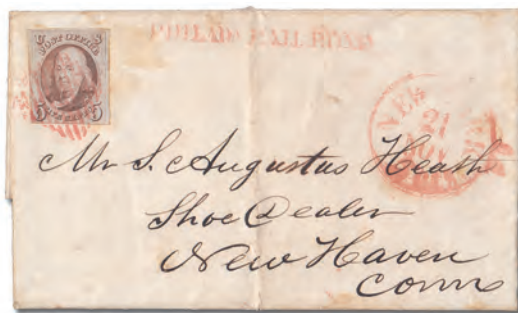 POST OFFICE
5 5
PHILADA RAILROAD
21
Mr S. Augustus Heash
Shoe Dealer
New Haven
Conn